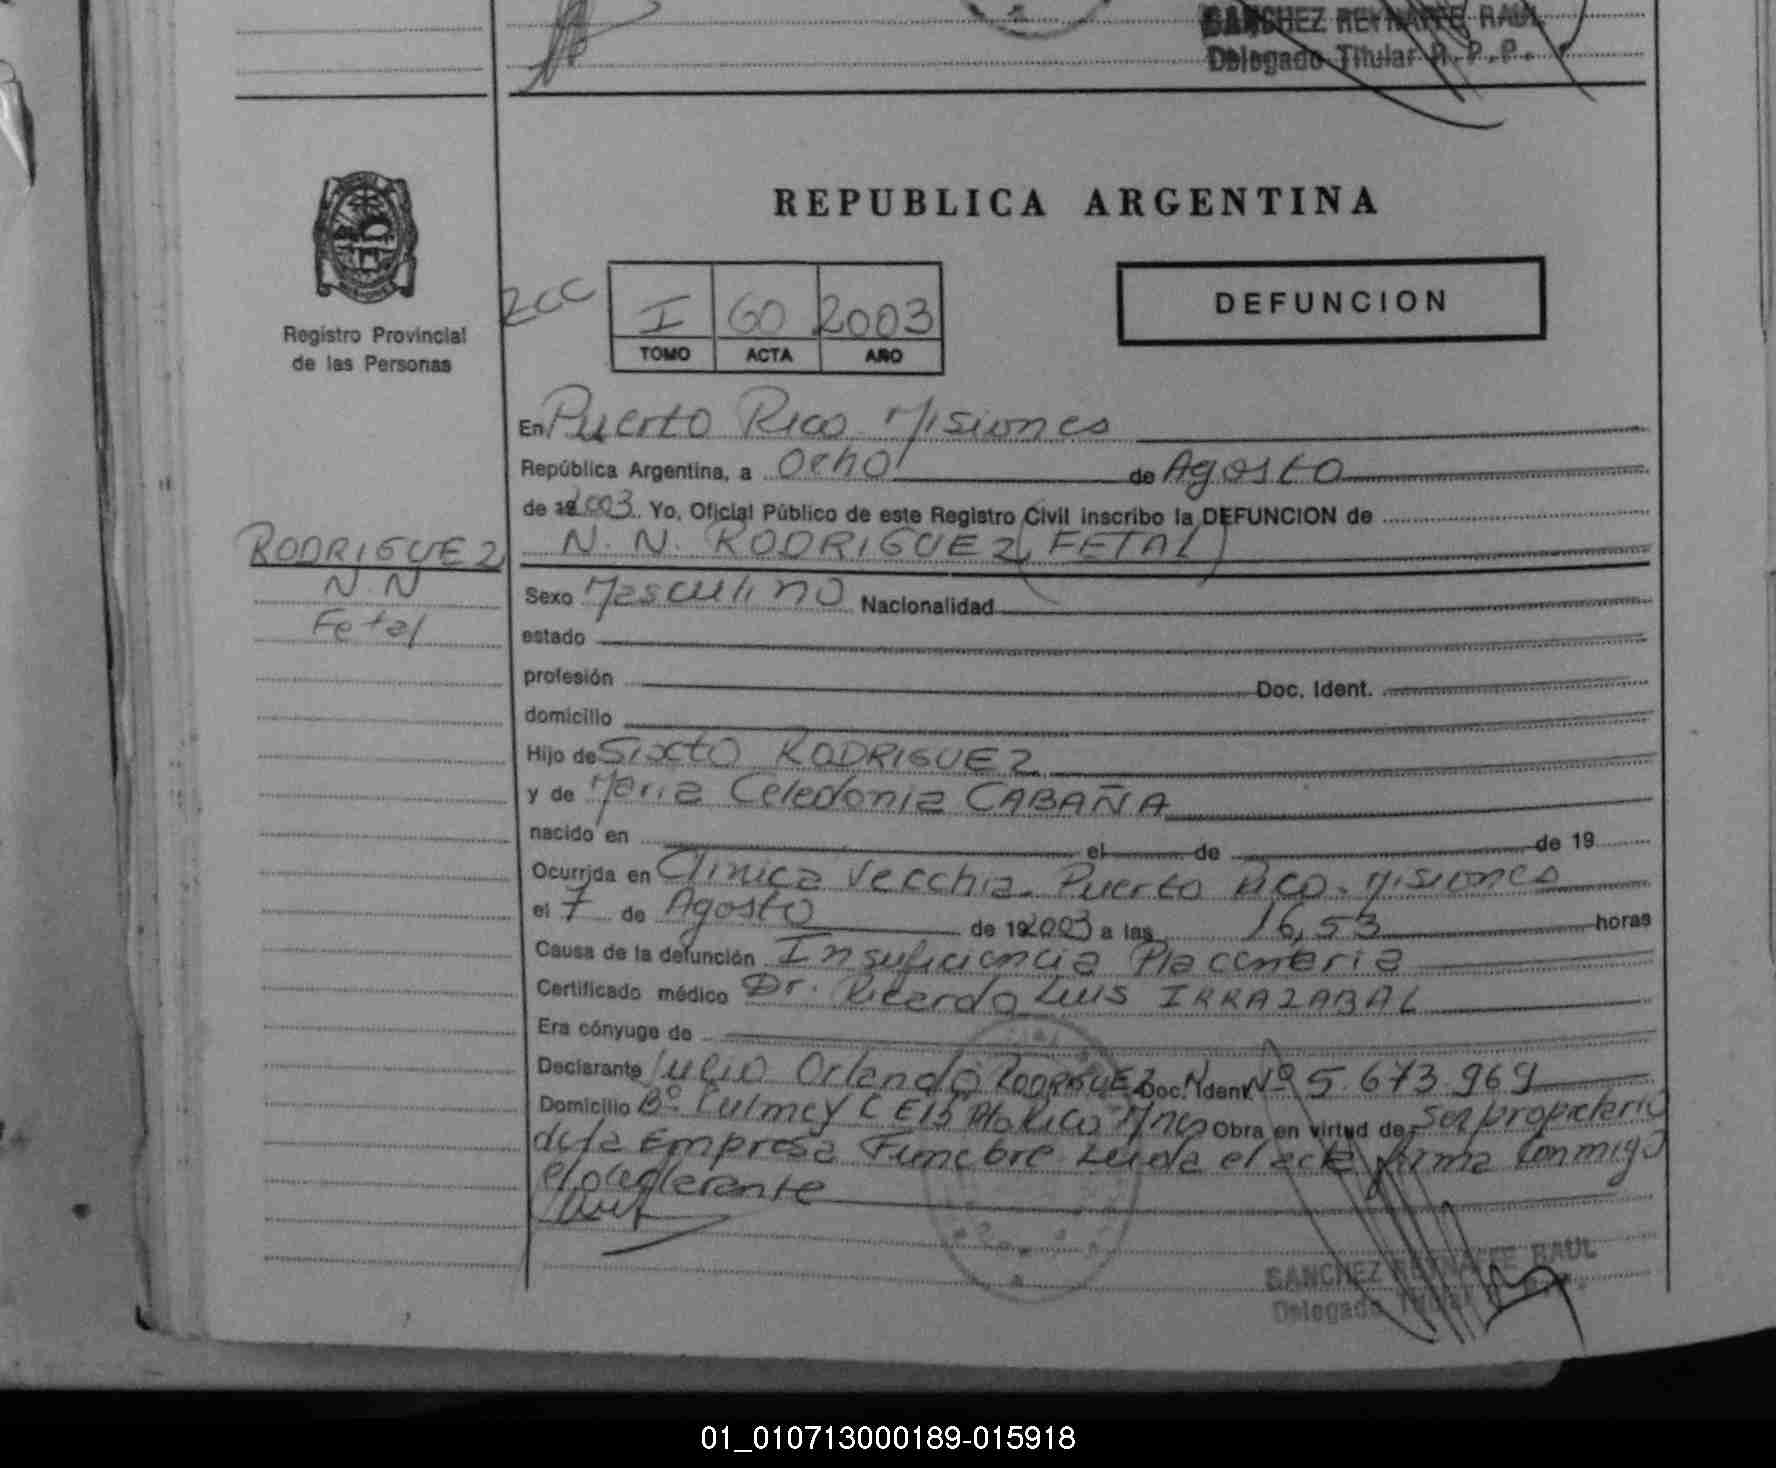 SANCHEZ REYNAFFE RAUL
Delegado Titular R.P.P.
REPUBLICA ARGENTINA
Registro Provincial
de las Personas
I 60 2003
TOMO ACTA AÑO
DEFUNCION
En Puerto Rico Misiones
República Argentina, a Ocho de Agosto
de 192003. Yo, Oficial Público de este Registro Civil inscribo la DEFUNCION de
N. N. RODRIGUEZ (FETAL)
RODRIGUEZ
N.N
Fetal
Sexo Masculino Nacionalidad
estado
profesión Doc. Ident.
domicilio
Hijo de Sixto RODRIGUEZ
y de Maria Celedonia CABAÑA
nacido en el de de 19
Ocurrida en Clinica Vecchia. Puerto Rico. Misiones
el 7 de Agosto de 192003 a las 16,53 horas
Causa de la defunción Insuficiencia Placentaria
Certificado médico Dr. Ricardo Luis IRRAZABAL
Era cónyuge de
Declarante Julio Orlando RODRIGUEZ Doc. Ident Nº 5.673.969
Domicilio Bº Pto Rico Mnes Obra en virtud de ser propietario
de la Empresa Funebre Leida el acta firma conmigo
el declarante
SANCHEZ REYNAFFE RAUL
Delegado Titular R.P.P.
01_010713000189-015918